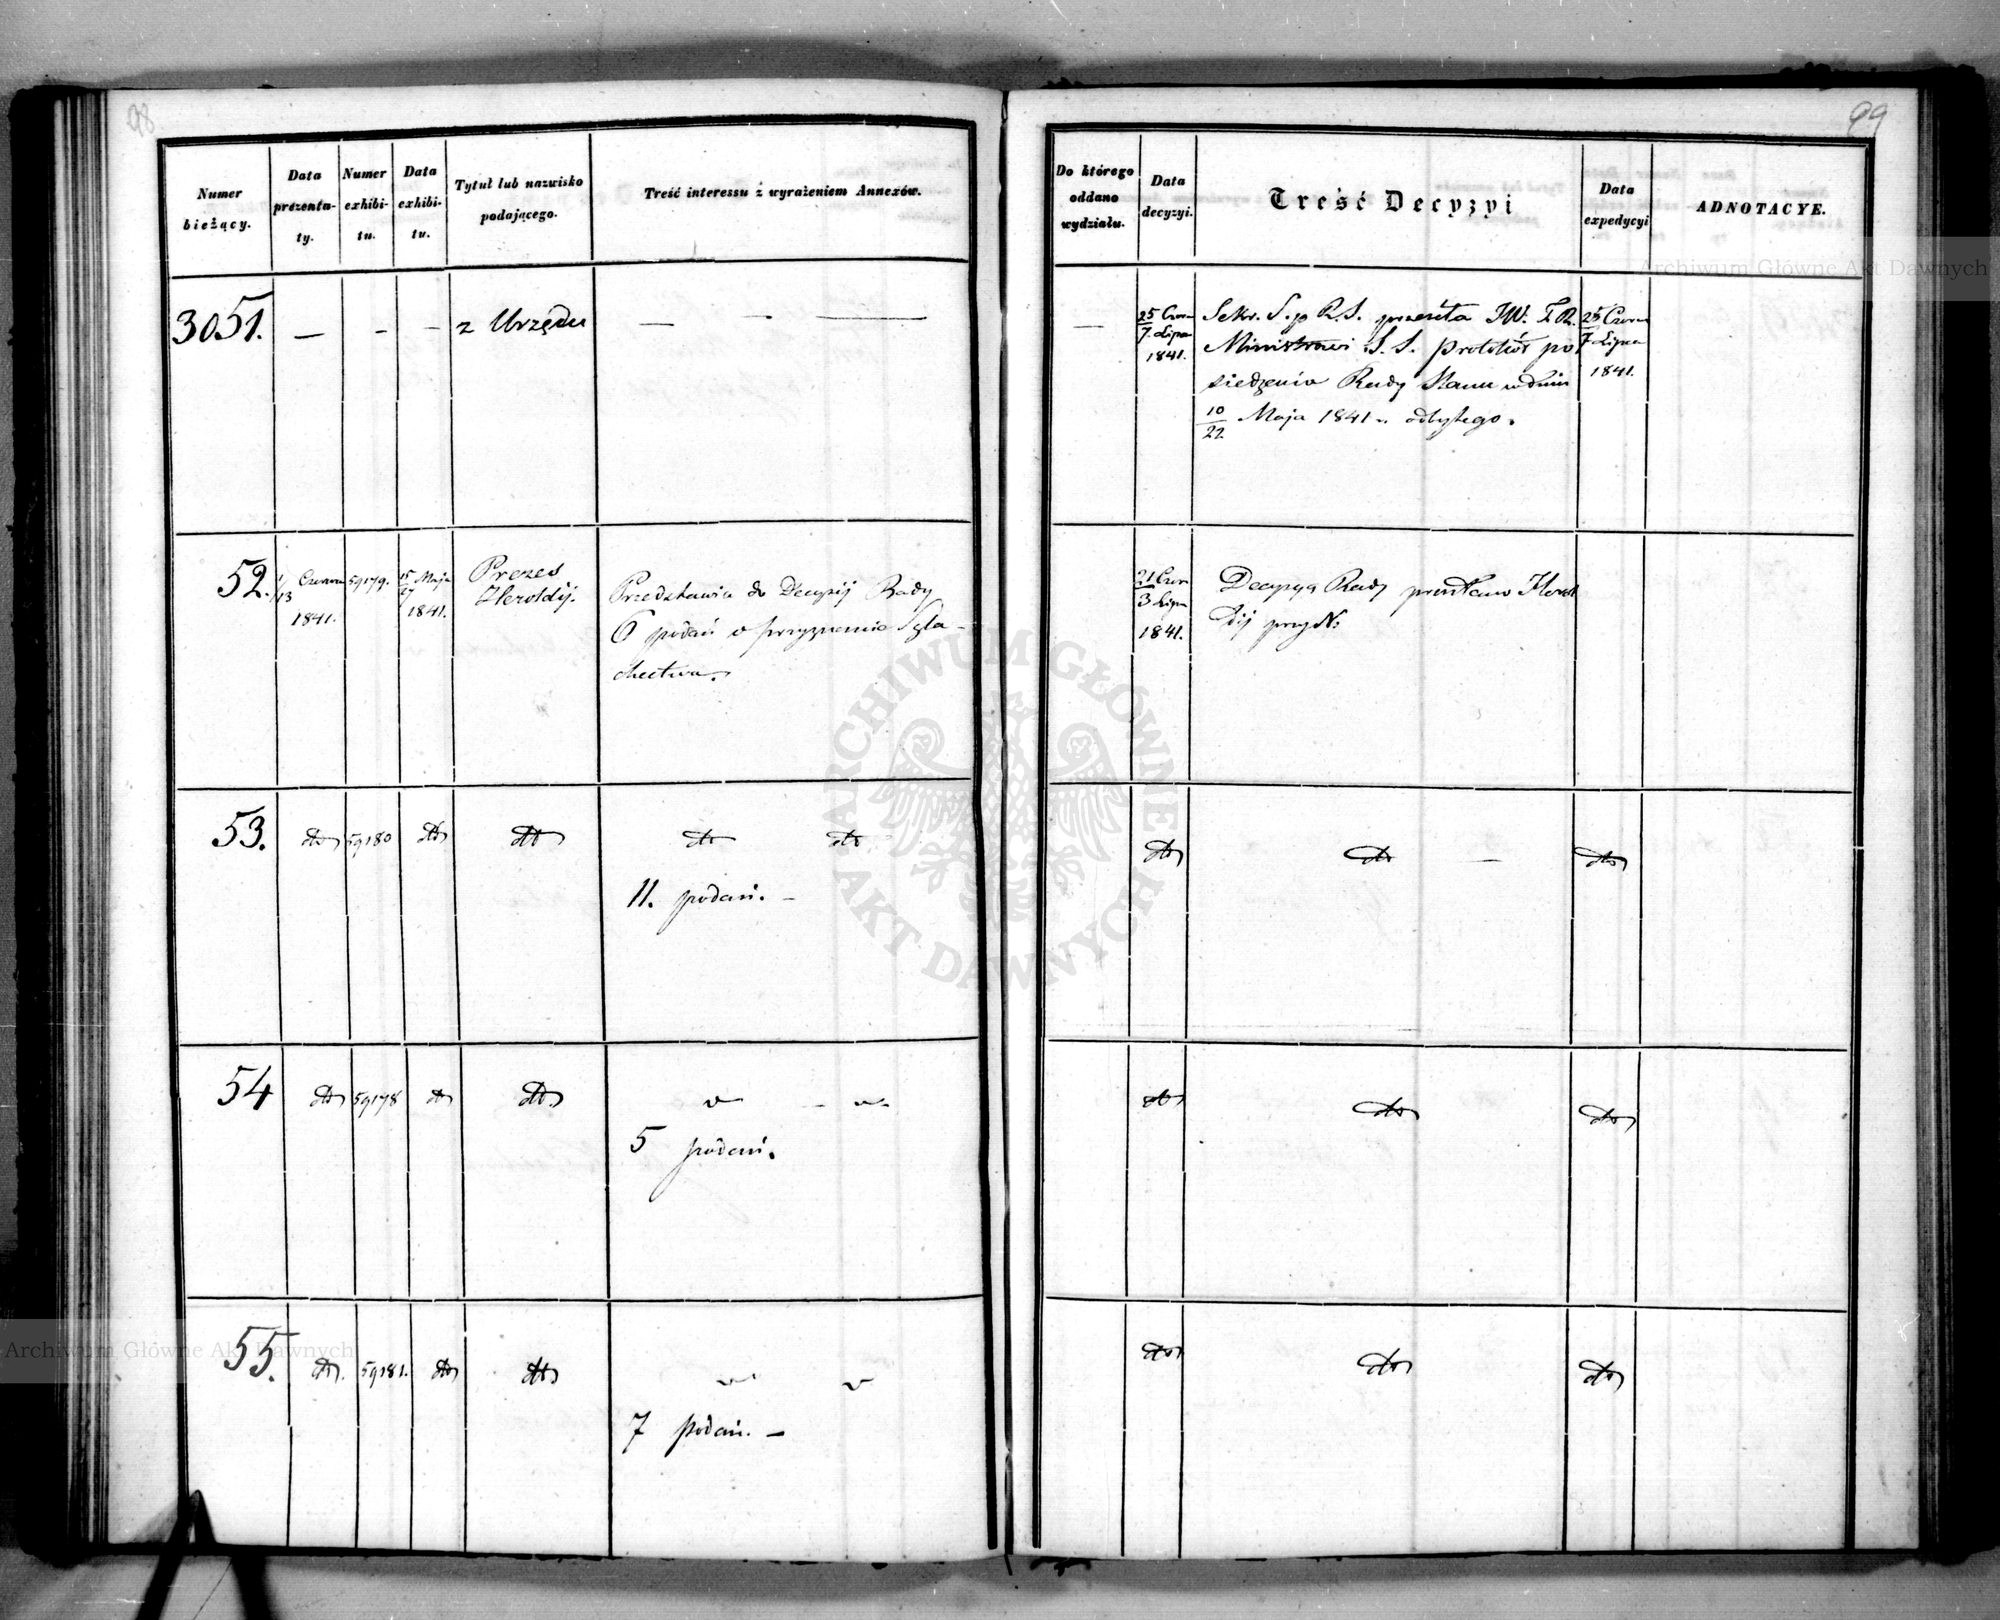 98
Numer
bieżący.
Data
prezenta-
ty.
Numer
exhibi-
tu.
Data
exhibi-
tu.
Tytuł lub nazwisko
podającego.
Treść interessu z wyrażeniem Annexów.
3051. — - — z Urzędu — - —
52. 1/13 Czerwca 1841. 59179. 15/27 Maja 1841. Prezes
Heroldij.
Przedstawia do Decyzij Rady
6 podań o przyznanie Szla-
chectwa.
53. dto 59180 dto dto dto dto
11. podań. -
54 dto 59178 dto dto. " - "
5 podań.
55. dto. 59181. dto dto " "
7 podań. -
99
Do którego
oddano
wydziału.
Data
decyzyi.
Treść Decyzyi
Data
expedycyi
ADNOTACYE.
— 25 Czer
7. Lipca
1841.
Sekr. S. p R. S. przesyła JW. T. R.
Ministrowi S. S. Protokół po
siedzenia Rady Stanu w dniu
10/22 Maja 1841 r. odbytego.
25 Czerw
7 Lipca
1841.
21 Czer
3 Lipca
1841.
Decyzya Rady Herol
dij przy N:
dto dto — dto
dto dto dto
dto dto dto
Archiwum Główne Akt Dawnych
ARCHIWUM GŁÓWNE AKT DAWNYCH
Archiwum Główne Akt Dawnych